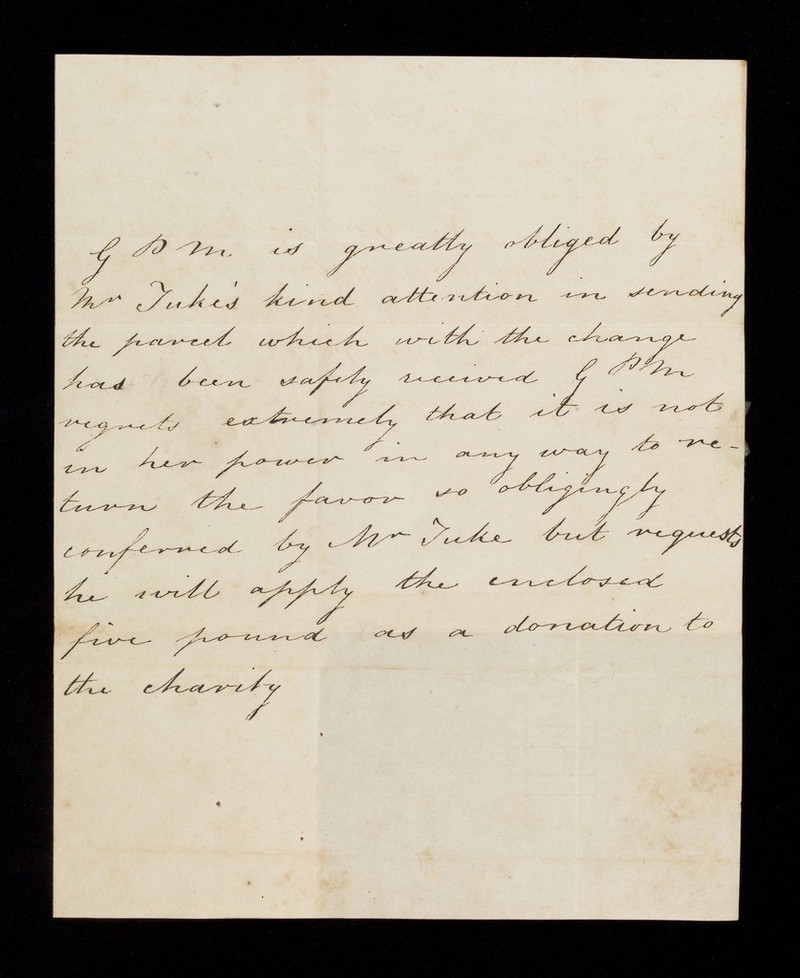 G P M is greatly obliged by
Mr Tuke's kind attention in sending
the parcel which with the change
has been safely received G P M
regrets extremely that it is not
in her power in any way to re-
turn the favor so obligingly
conferred by Mr Tuke but requests
he will apply the enclosed
five pound as a donation to
the charity